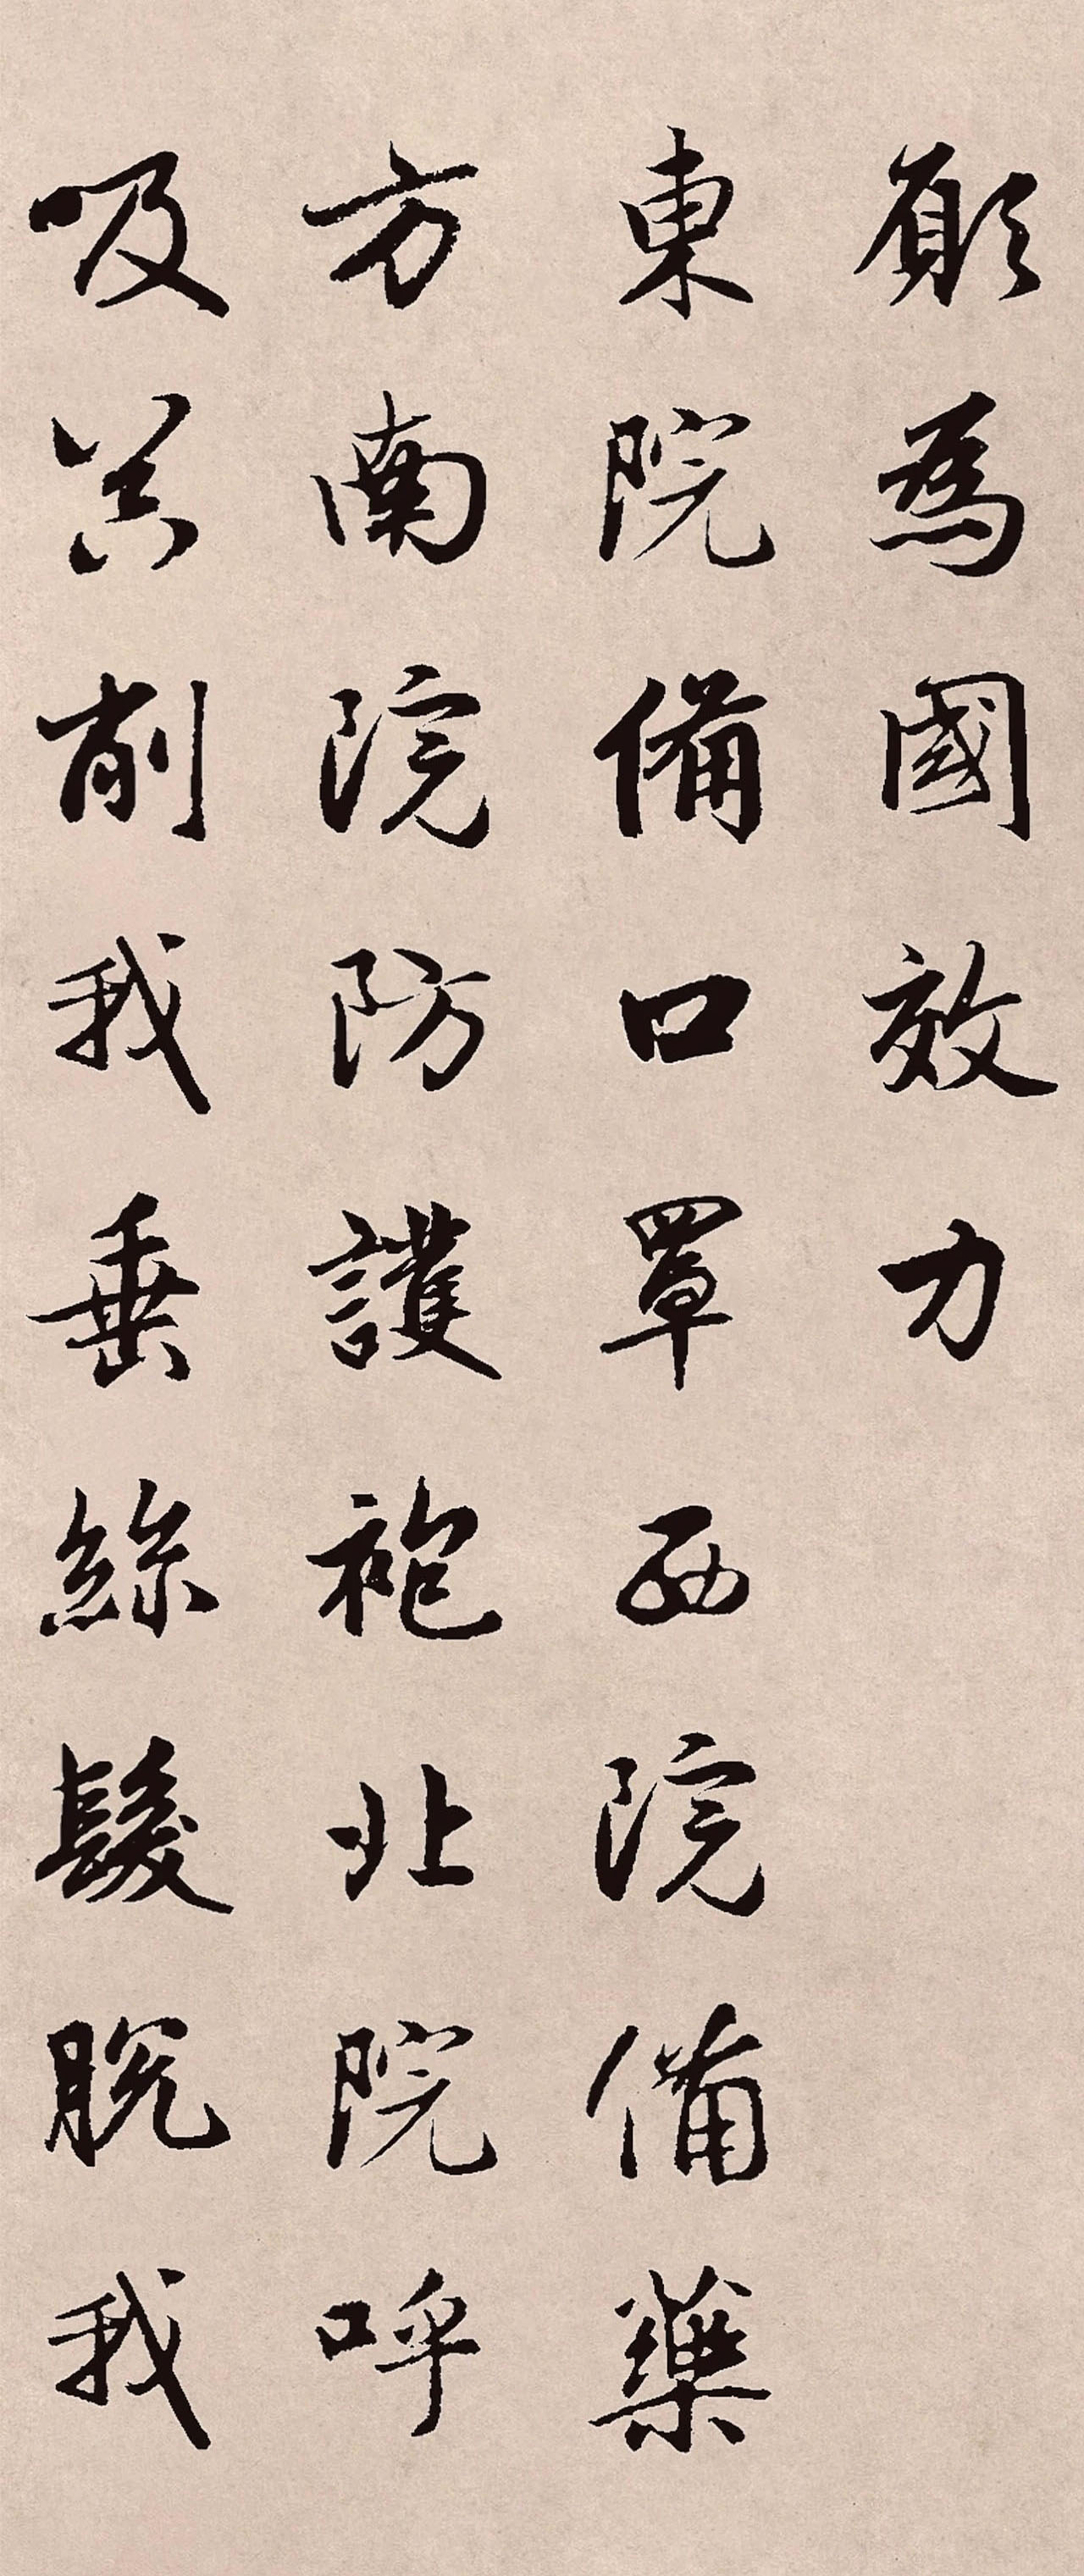 願為國效力
東院備口罩西院備藥
方南院防護袍北院呼
吸器削我垂絲髮脫我